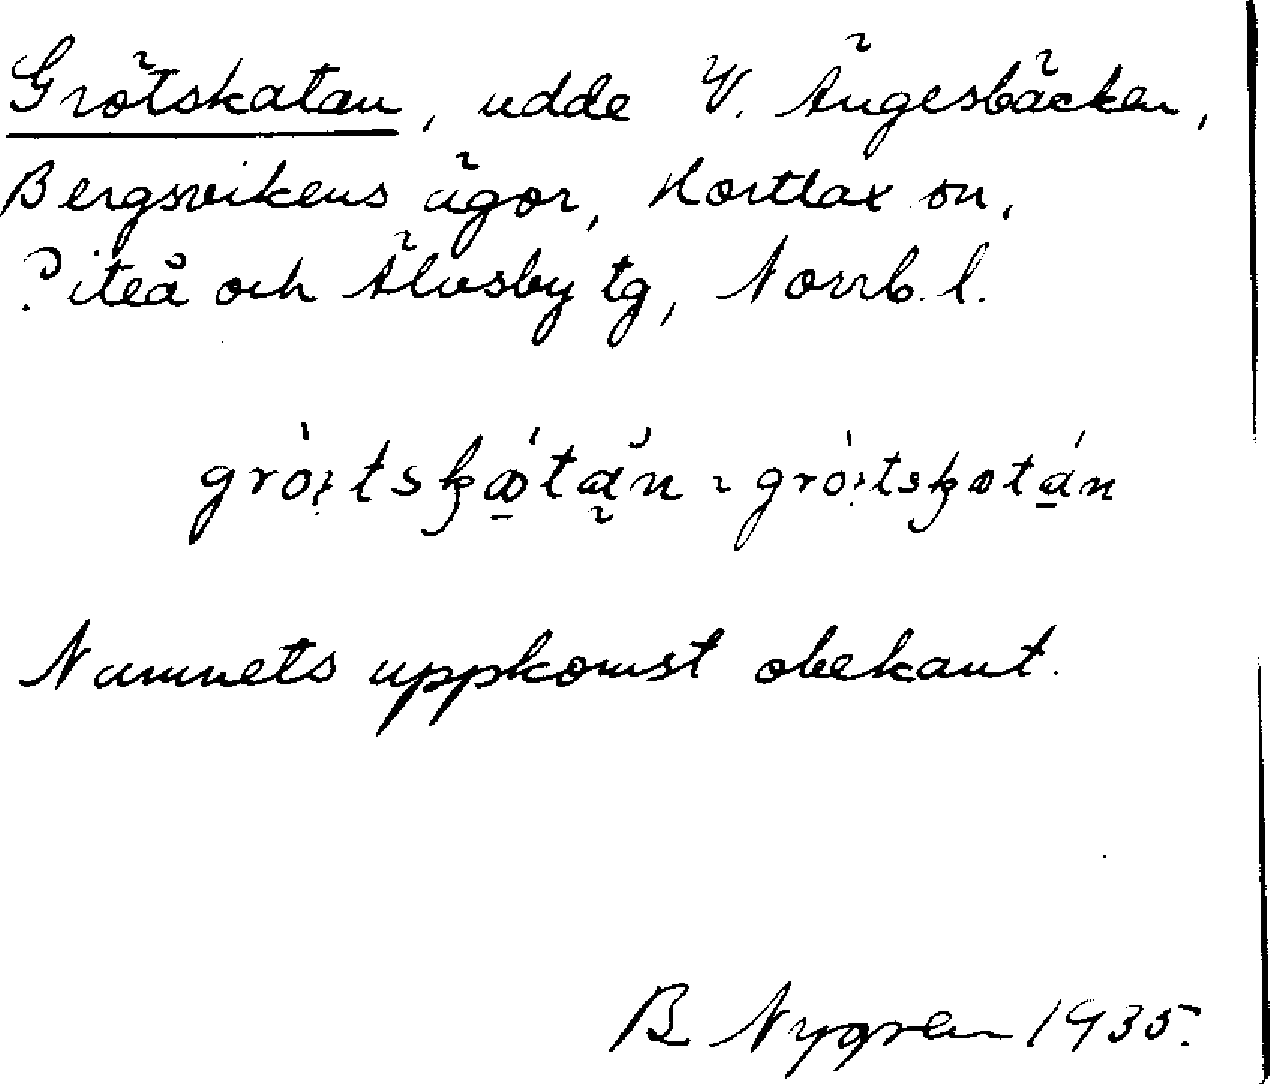 Grötskatan, udde V. Ängesbäcken,
Bergsvikens ägor, Hortlax sn,
Piteå och Älvsby tg, Norrb. l.
Namnets uppkomst obekant.
B Nygren 1935.